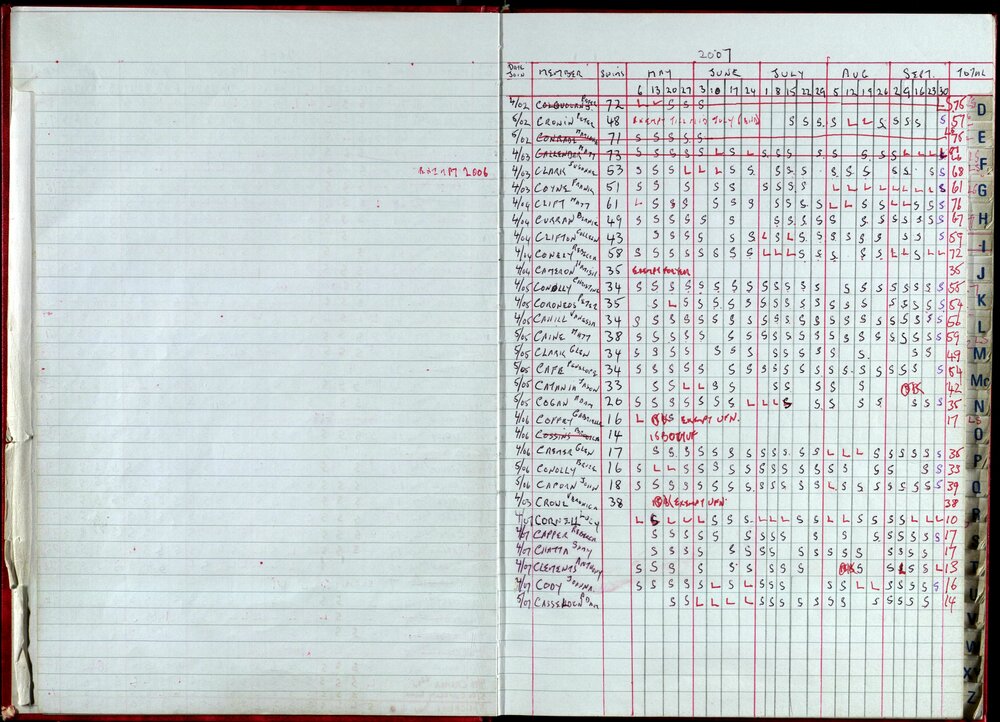 2007
DATE JOIN MEMBER SWIMS MAY JUNE JULY AUG SEPT. TOTAL
6 13 20 27 3 10 17 24 1 8 15 22 29 5 12 19 26 2 9 16 23 30
4/02 72 L L S S S 76
5/02 CRONIN PETER 48 EXEMPT TILL MID JULY S S S S S L L S S S S S 57
5/02 CONRADE 71 S S S S S
4/03 CALLENDER MATT 73 S S S S S L S L S S S S S S S S S L L L L
EXEMPT 2006
4/03 CLARK SUZANNE 53 S S S L L L S S S S S S S S S S S S 68
4/03 COYNE FRANK 51 S S S S S S S S S L L L L L L L L S 61
4/04 CLIFT MATT 61 L S S S S S S S S S S S L L S S L L S S S 76
4/04 CURRAN BERNIE 49 S S S S S S S S S S S S S S S S S S 67
4/04 CLIFTON COLLEEN 43 S S S S S S L S L S S S S S S S S S 59
4/04 CONERY REBECCA 58 S S S S S S S S L L L S S S S S L L S L 72
4/04 CAMERON HAMISH 35 EXEMPT FOR YEAR 35
4/05 CONOLLY CHRISTINE 34 S S S S S S S S S S S S S S S S S S S S S 55
4/05 CORONEOS PETER 35 S L S S S S S S S S S S S S S S S S S S 54
4/05 CAHILL VANESSA 34 S S S S S S S S S S S S S S S S S S S S S S 56
5/05 CAINE MATT 38 S S S S S S S S S S S S S S S S S S S S S 59
5/05 CLARK GLEN 34 S S S S S S S S S S S S S S S 49
5/05 CAFE PENELOPE 34 S S S S S S S S S S S S S S S S S S S S 54
5/05 CATANIA JASON 33 S S L L S S S S S S S 42
5/05 COGAN ADAM 20 S S S S S S S L L L S S S S S S S S S 35
4/06 COFFEY GABRIELLE 16 L EXEMPT UFN. 17
4/06 COSSINS 14
4/06 CREMER GLEN 17 S S S S S S S S S S S S L L L S S S S S S 35
5/06 CONOLLY BRICE 16 S L L S S S S S S S S S S S S S S S S 33
5/06 CAPORN JOHN 18 S S S S S S S S S S S S S L S S S S S S S S 39
4/03 CROWL VERONICA 38 EXEMPT UFN 38
4/07 CORNISH LUCY L S L L L S S S L L L S S L L S S S S L L L 10
4/07 CAPPER REBECCA S S S S S S S S S S S S S S S S S 17
4/07 CHATTA SAMY S S S S S S S S S S S S S S S S S 17
4/07 CLEMENTS ANTHONY S S S S S S S S S S S L S L 13
4/07 CODY JOANNA S S S S S L S L S S S S S L L S S S S S 16
5/07 CASSELDEN ADAM S S L L L L S S S S S S S S S S S S 14
D
E
F
G
H
I
J
K
L
M
Mc
N
O
P
Q
R
S
T
U
V
W
X
Z